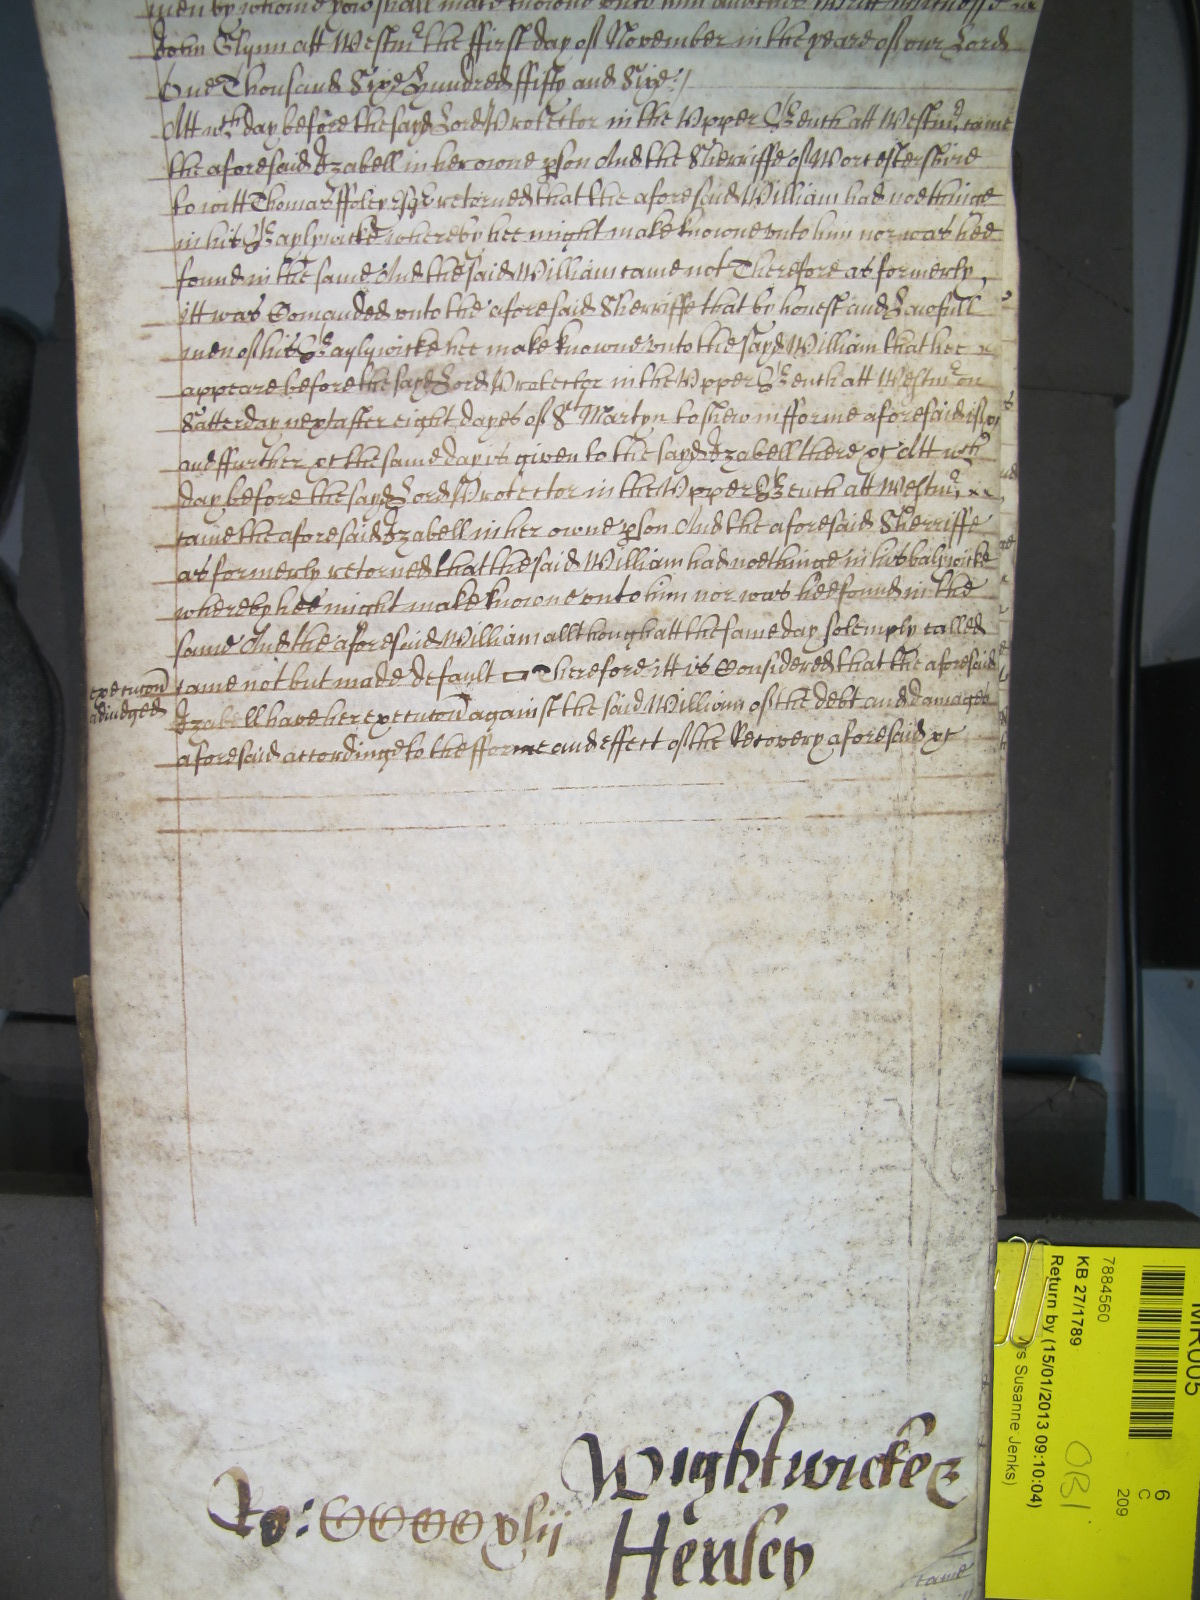 men by whome yow shall make knowne unto him and this Writt Witnesse
John Glynn att Westmr the ffirst day of November in the yeare of our Lord
One Thousand Sixe Hundred ffifty and Sixe
Att wch day before the sayd Lord Protector in the Upper Bench att Westmr came
the aforesaid Izabell in her owne pson And the Sherriffe of Worcestershire
to witt Thomas ffoley Esqr retorned that the aforesaid William had noethinge
in his Baylywicke whereby hee might make knowne unto him nor was hee
found in the same And the said William came not Therefore as formerly
itt was Comanded unto the aforesaid Sherriffe that by honest and Lawfull
men of his Baylywicke hee make knowne unto the sayd William that hee
appeare before the sayd Lord Protector in the Upper Bench att Westmr on
Satterday next after eight dayes of St Martyn to shew in fforme aforesaid if
and ffurther &c the same day is given to the sayd Izabell there &c Att wch
day before the sayd Lord Protector in the Upper Bench att Westmr
came the aforesaid Izabell in her owne pson And the aforesaid Sherriffe
as formerly retorned that the said William had noethinge in his baliwicke
whereby hee might make knowne unto him nor was hee found in the
same And the aforesaid William allthough att the same day solemply called
came not but made default Therefore itt is Considered that the aforesaid
execucon adiudged
Izabell have her execucon against the said William of the debt and damages
aforesaid accordinge to the fforme and effect of the Recovery aforesaid &c
Wightwicke
Ro: CCCCxlii
Henley
MR005
6
C
209
7884560
KB 27/1789
Return by (15/01/2013 09:10:04)
Susanne Jenks)
OB1